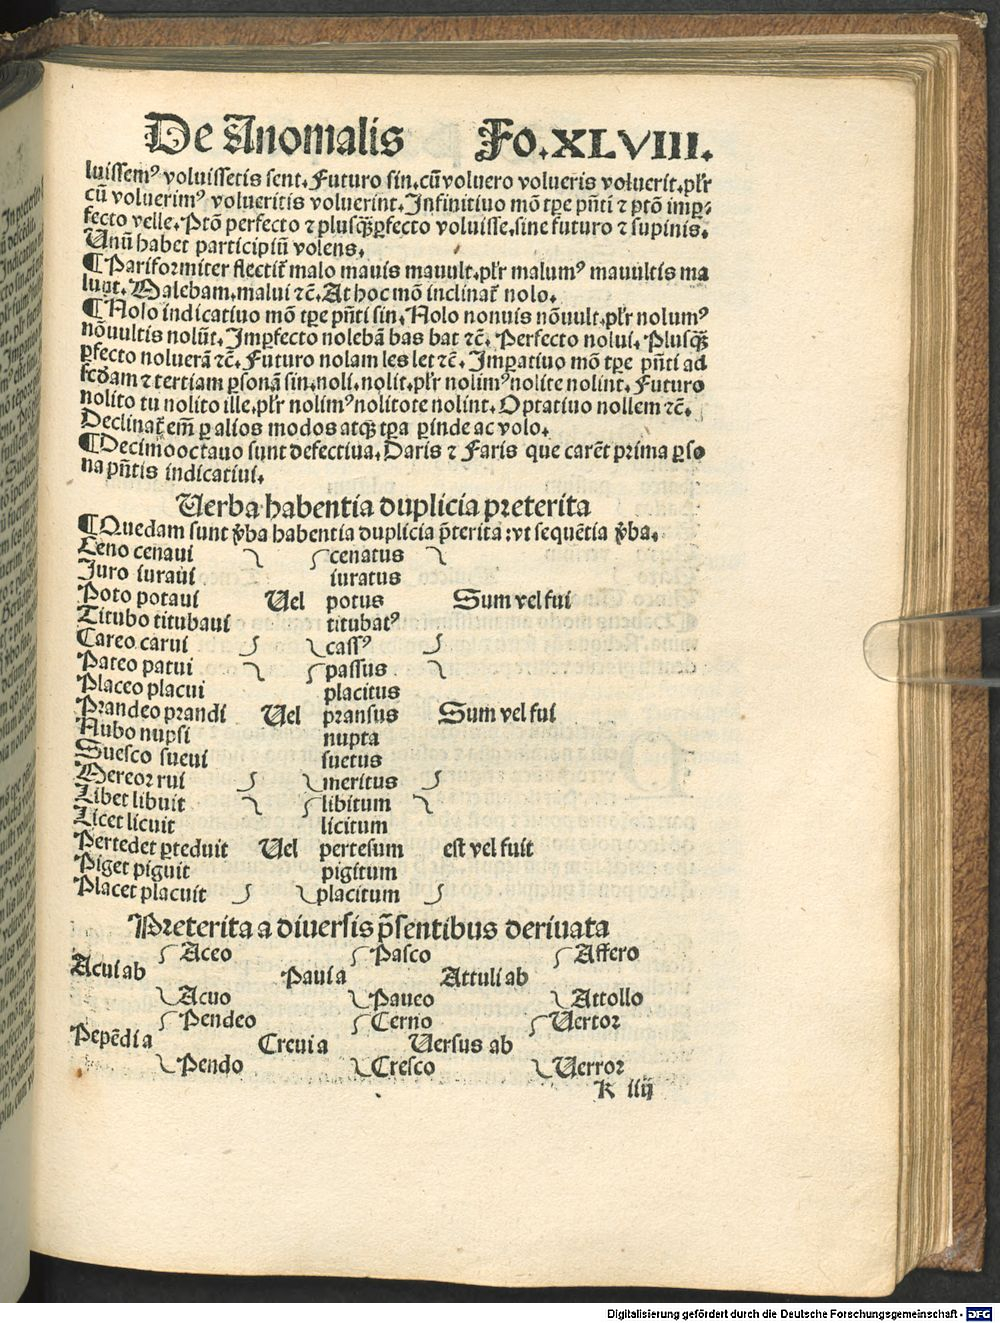 De Anomalis Fo.XLVIII.
luissemꝰ voluissetis sent. Futuro sin. cū voluero volueris voluerit. plr̄
cū voluerimꝰ volueritis voluerint. Infinitiuo mō tꝑe pn̄ti ⁊ ptō imꝑ⸗
fecto velle. Ptō perfecto ⁊ plusqꝫꝑfecto voluisse. sine futuro ⁊ supinis.
Unū habet participiū volens.
¶ Pariformiter flectit̄ malo mauis mauult. plr̄ malumꝰ mauultis ma
lunt. Malebam. malui ⁊c̄. At hoc mō inclinat̄ nolo.
¶ Nolo indicatiuo mō tꝑe pn̄ti sin. Nolo nonuis nōuult. plr̄ nolumꝰ
nōuultis nolūt. Imꝑfecto nolebā bas bat ⁊c̄. Perfecto nolui. Plusqꝫ
ꝑfecto noluerā ⁊c̄. Futuro nolam les let ⁊c̄. Imꝑatiuo mō tꝑe pn̄ti ad
scd̄am ⁊ tertiam ꝑsonā sin. noli. nolit. plr̄ nolimꝰ nolite nolint. Futuro
nolito tu nolito ille. plr̄ nolimꝰ nolitote nolint. Optatiuo nollem ⁊c̄.
Declinat̄ em̄ ꝑ alios modos atqꝫ tꝑa ꝑinde ac volo.
¶ Decimooctauo sunt defectiua. Daris ⁊ Faris que carēt prima ꝑso
na pn̄tis indicatiui.
Uerba habentia duplicia preterita
¶ Quedam sunt v̄ba habentia duplicia p̄terita: vt sequētia v̄ba.
Ceno cenaui cenatus
Juro iuraui iuratus
Poto potaui Uel potus Sum vel fui
Titubo titubaui titubatꝰ
Careo carui cassꝰ
Pateo patui passus
Placeo placui placitus
Prandeo prandi Uel pransus Sum vel fui
Nubo nupsi nupta
Suesco sueui suetus
Mereor rui meritus
Libet libuit libitum
Licet licuit licitum
Pertedet ꝑteduit Uel pertesum est vel fuit
Piget piguit pigitum
Placet placuit placitum
Preterita a diuersis p̄sentibus deriuata
Aceo Pasco Affero
Acui ab Paui a Attuli ab
Acuo Paueo Attollo
Pendeo Cerno Uertor
Pepēdi a Creui a Uersus ab
Pendo Cresco Uerror
K iiij
Digitalisierung gefördert durch die Deutsche Forschungsgemeinschaft - DFG